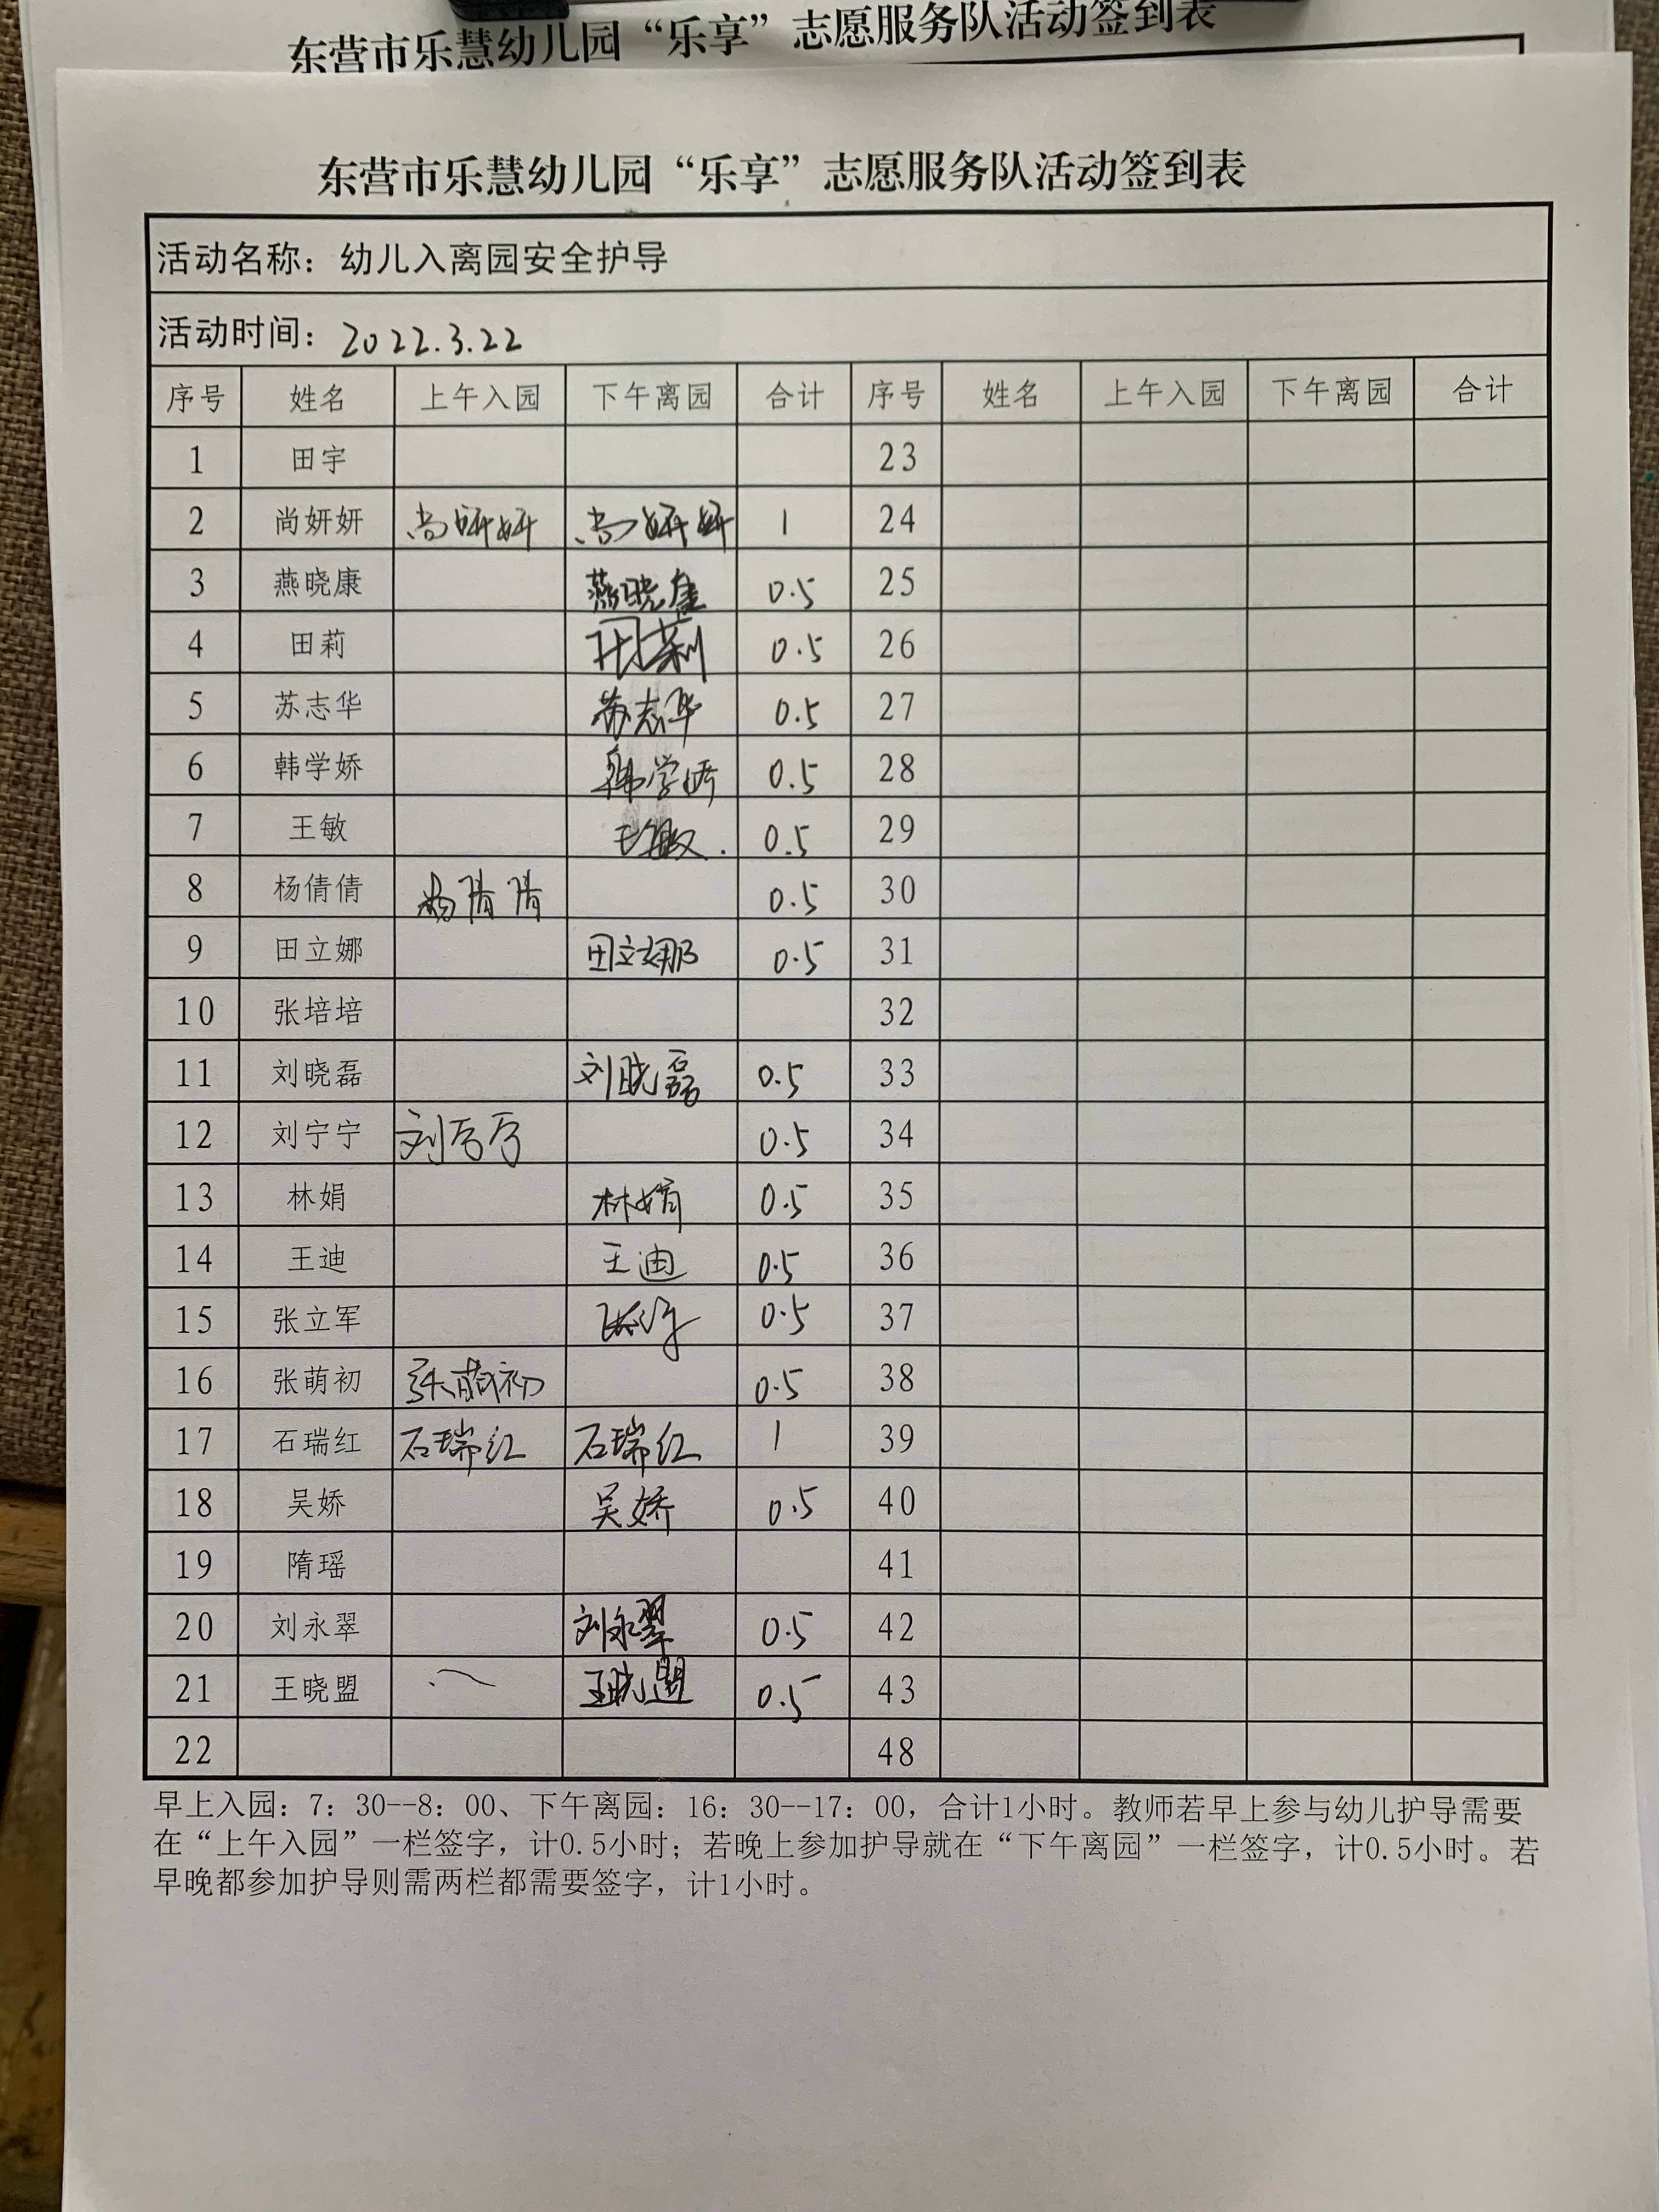 东营市乐慧幼儿园“乐享”志愿服务队活动签到表
东营市乐慧幼儿园“乐享”志愿服务队活动签到表
活动名称：幼儿入离园安全护导
活动时间：2022.3.22
序号 姓名 上午入园 下午离园 合计 序号 姓名 上午入园 下午离园 合计
1 田宇 23
2 尚妍妍 尚妍妍 尚妍妍 1 24
3 燕晓康 燕晓康 0.5 25
4 田莉 田莉 0.5 26
5 苏志华 苏志华 0.5 27
6 韩学娇 韩学娇 0.5 28
7 王敏 王敏 0.5 29
8 杨倩倩 杨倩倩 0.5 30
9 田立娜 田立娜 0.5 31
10 张培培 32
11 刘晓磊 刘晓磊 0.5 33
12 刘宁宁 刘宁宁 0.5 34
13 林娟 林娟 0.5 35
14 王迪 王迪 0.5 36
15 张立军 张立军 0.5 37
16 张萌初 张萌初 0.5 38
17 石瑞红 石瑞红 石瑞红 1 39
18 吴娇 吴娇 0.5 40
19 隋瑶 41
20 刘永翠 刘永翠 0.5 42
21 王晓盟 王晓盟 0.5 43
22 48
早上入园：7：30--8：00、下午离园：16：30--17：00，合计1小时。教师若早上参与幼儿护导需要
在“上午入园”一栏签字，计0.5小时；若晚上参加护导就在“下午离园”一栏签字，计0.5小时。若
早晚都参加护导则需两栏都需要签字，计1小时。